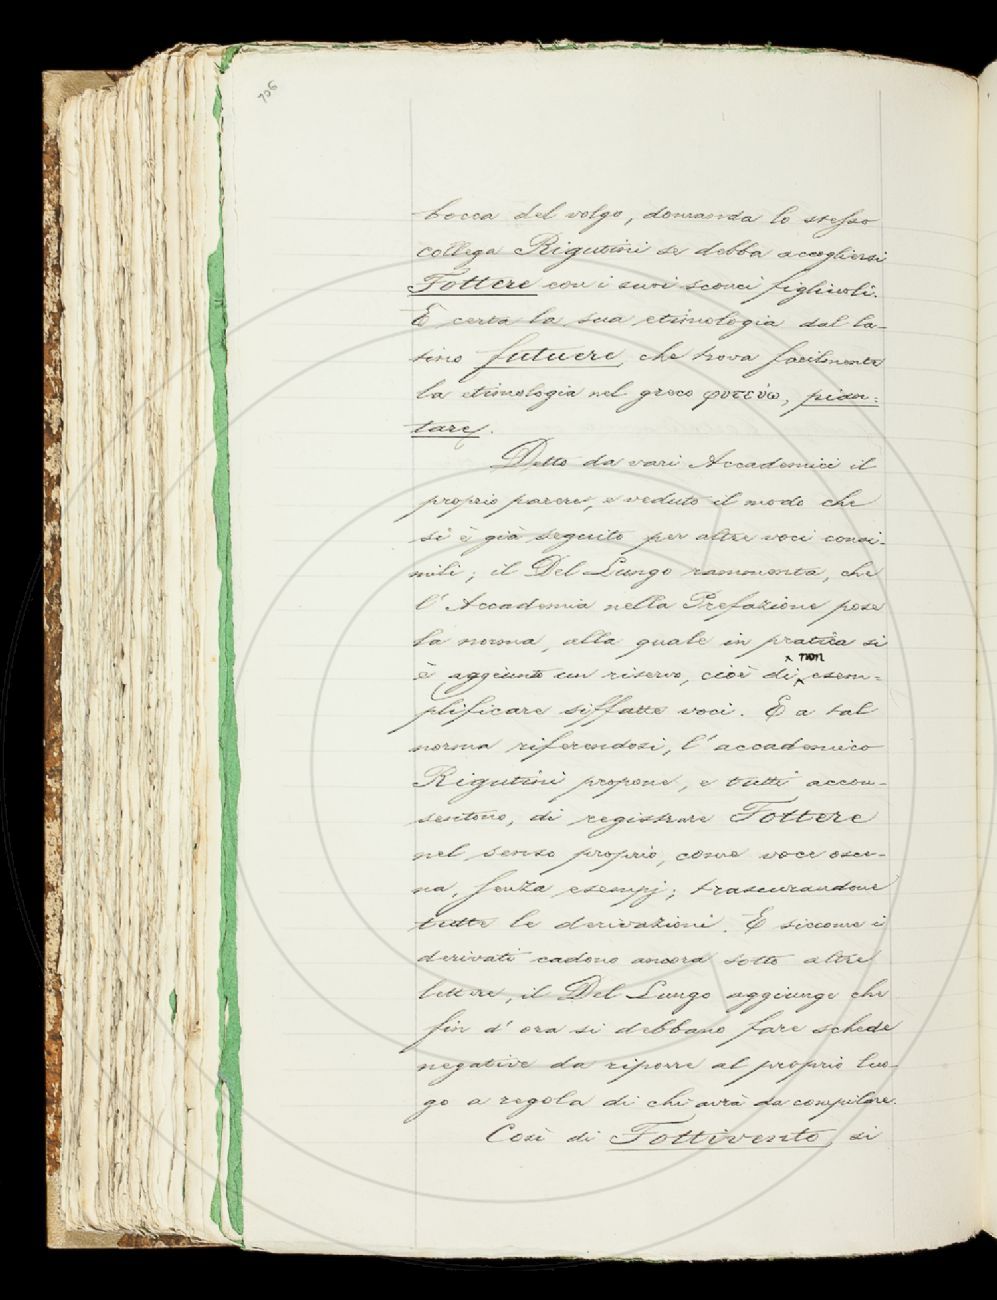 706
bocca del volgo, domanda lo stesso
collega Rigutini se debba accogliersi
Fottere con i suoi sconci figliuoli.
È certa la sua etimologia dal la-
tino futuere, che trova facilmente
la etimologia nel greco φυτεύω, pian-
tare.
Detto da vari Accademici il
proprio parere, e veduto il modo che
si è già seguito per altre voci consi-
mili; il Del Lungo rammenta, che
l'Accademia nella Prefazione pose
la norma, alla quale in pratica si
è aggiunto un riservo, cioè di non esem-
plificare siffatte voci. E a tal
norma riferendosi, l'accademico
Rigutini propone, e tutti accon-
sentono, di registrare Fottere
nel senso proprio, come voce osce-
na, senza esempj; trascurandone
tutte le derivazioni. E siccome i
derivati cadono ancora sotto altre
lettere, il Del Lungo aggiunge che
fin d'ora si debbano fare schede
negative da riporre al proprio luo-
go a regola di chi avrà da compilare.
Così di Fottivento, si